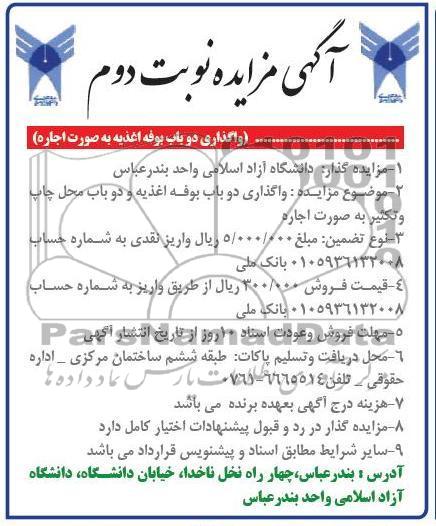 آگهی مزایده نوبت دوم
(واگذاری دو باب بوفه اغذیه به صورت اجاره)
۱-مزایده گذار: دانشگاه آزاد اسلامی واحد بندرعباس
۲-موضوع مزایـده : واگذاری دو باب بوفـه اغذیـه و دو باب محل چاپ
وتکثیر به صورت اجاره
۳-نوع تضمین: مبلغ ۵/۰۰۰/۰۰۰ ریال واریز نقدی به شـماره حساب
۰۱۰۵۹۳۶۱۳۲۰۰۸ بانک ملی
۴-قیمـت فـروش ۳۰۰/۰۰۰ ریال از طریق واریز به شماره حسـاب
۰۱۰۵۹۳۶۱۳۲۰۰۸ بانک ملی
۵-مهلت فروش وعودت اسناد ۱۰روز از تاریخ انتشار آگهی
۶-محل دریافت وتسلیم پاکات: طبقه ششم ساختمان مرکزی _ اداره
حقوقی _ تلفن ۶۶۶۵۵۱۴-۰۷۶۱
۷-هزینه درج آگهی بعهده برنده می باشد
۸-مزایده گذار در رد و قبول پیشنهادات اختیار کامل دارد
۹-سایر شرایط مطابق اسناد و پیشنویس قرارداد می باشد
آدرس : بندرعباس،چهار راه نخل ناخدا، خیابان دانشـگاه، دانشگاه
آزاد اسلامی واحد بندرعباس
ParsNamadData